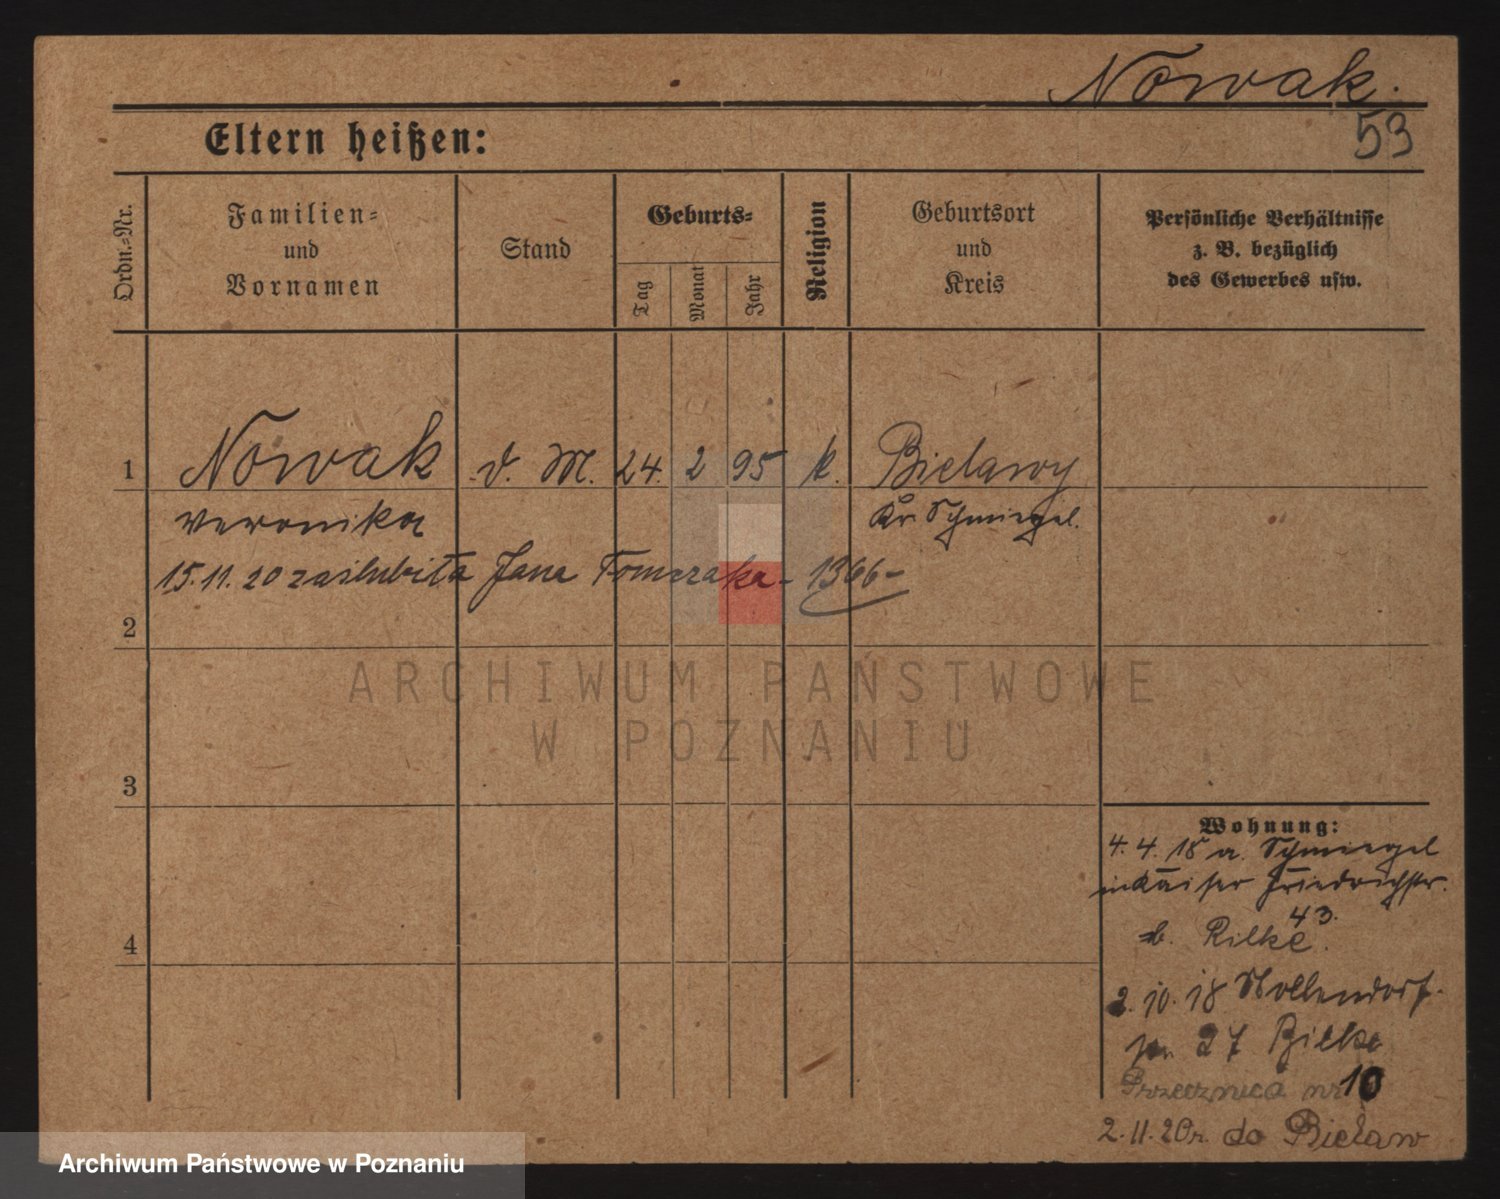 Nowak.
53
Eltern heißen:
Ordn.=Nr.
Familien=
und
Vornamen
Stand
Geburts=
Tag
Monat
Jahr
Religion
Geburtsort
und
Kreis
Persönliche Verhältnisse
z. B. bezüglich
des Gewerbes usw.
1 Nowak d. M. 24. 2 95 k. Bielawy
Veronika Kr. Schmiegel.
15.11.20 zaślubiła Jana Tomczaka - 1366 -
2
ARCHIWUM PAŃSTWOWE
W POZNANIU
3
Wohnung:
4. 4. 18 a. Schmiegel
in Kaiser Friedrichstr.
43.
b. Rilke.
4
2. 10. 18 Nollendorf-
27 Bilke
Przecznica nr 10
2. 11. 20 r. do Bielaw
Archiwum Państwowe w Poznaniu